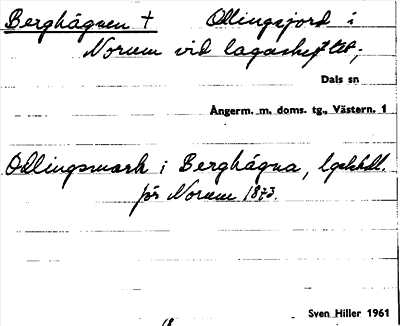 Berghägnen † Odlingsjord i
Norum vid lagaskiftet;
Dals sn
Ångerm. m. doms. tg., Västern. 1
Odlingsmark i Berghägna, lgskhdl.
för Norum 1873.
Sven Hiller 1961